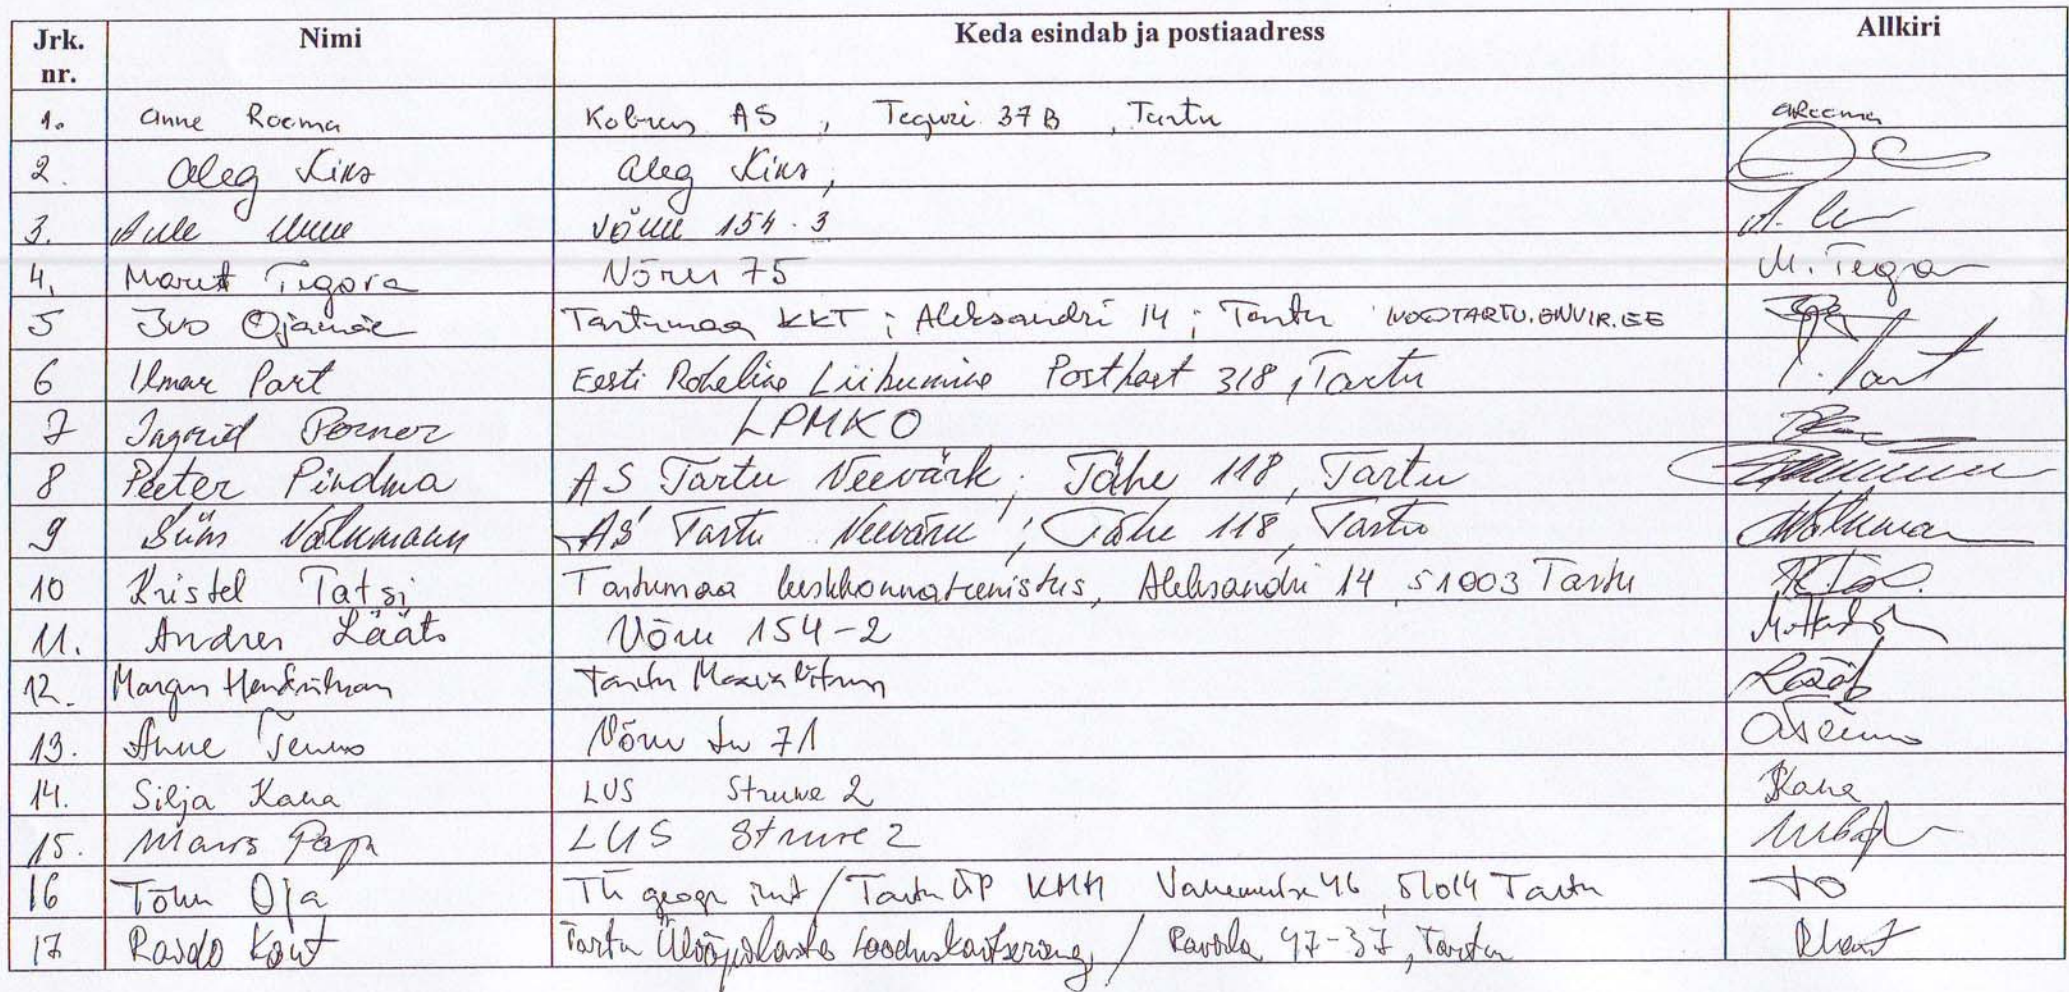 Jrk. nr. Nimi Keda esindab ja postiaadress Allkiri
1. Anne Rooma Kobras AS, Teguri 37B, Tartu ARooma
2. Oleg Kiks Oleg Kiks,
3. Aule Võru 154-3
4. Marit Tigora Võru 75 M. Tigora
5 Ivo Ojamäe Tartumaa KKT; Aleksandri 14; Tartu IVO@TARTU.ENVIR.EE
6 Ilmar Part Eesti Roheline Liikumine Postkast 318, Tartu I. Part
7 Ingrid Perner LPMKO
8 Peeter Pindma AS Tartu Veevärk; Tähe 118, Tartu
9 Siim Välkmann AS Tartu Veevärk; Tähe 118, Tartu
10 Kristel Tatsi Tartumaa keskkonnateenistus, Aleksandri 14, 51003 Tartu
11. Andres Lääts Võru 154-2
12. Margus Hendrikson Tartu
13. Anne Tenno Võru tn 71 ATenno
14. Silja Kana LUS Struve 2 SKana
15. Maris Paju LUS Struve 2
16 Tõnu Oja TÜ geogr inst / Tartu ÜP KMH Vanemuise 46, 51014 Tartu TO
17 Raido Kont Tartu Üliõpilaste Looduskaitsering, / Ravila 47-37, Tartu RKont